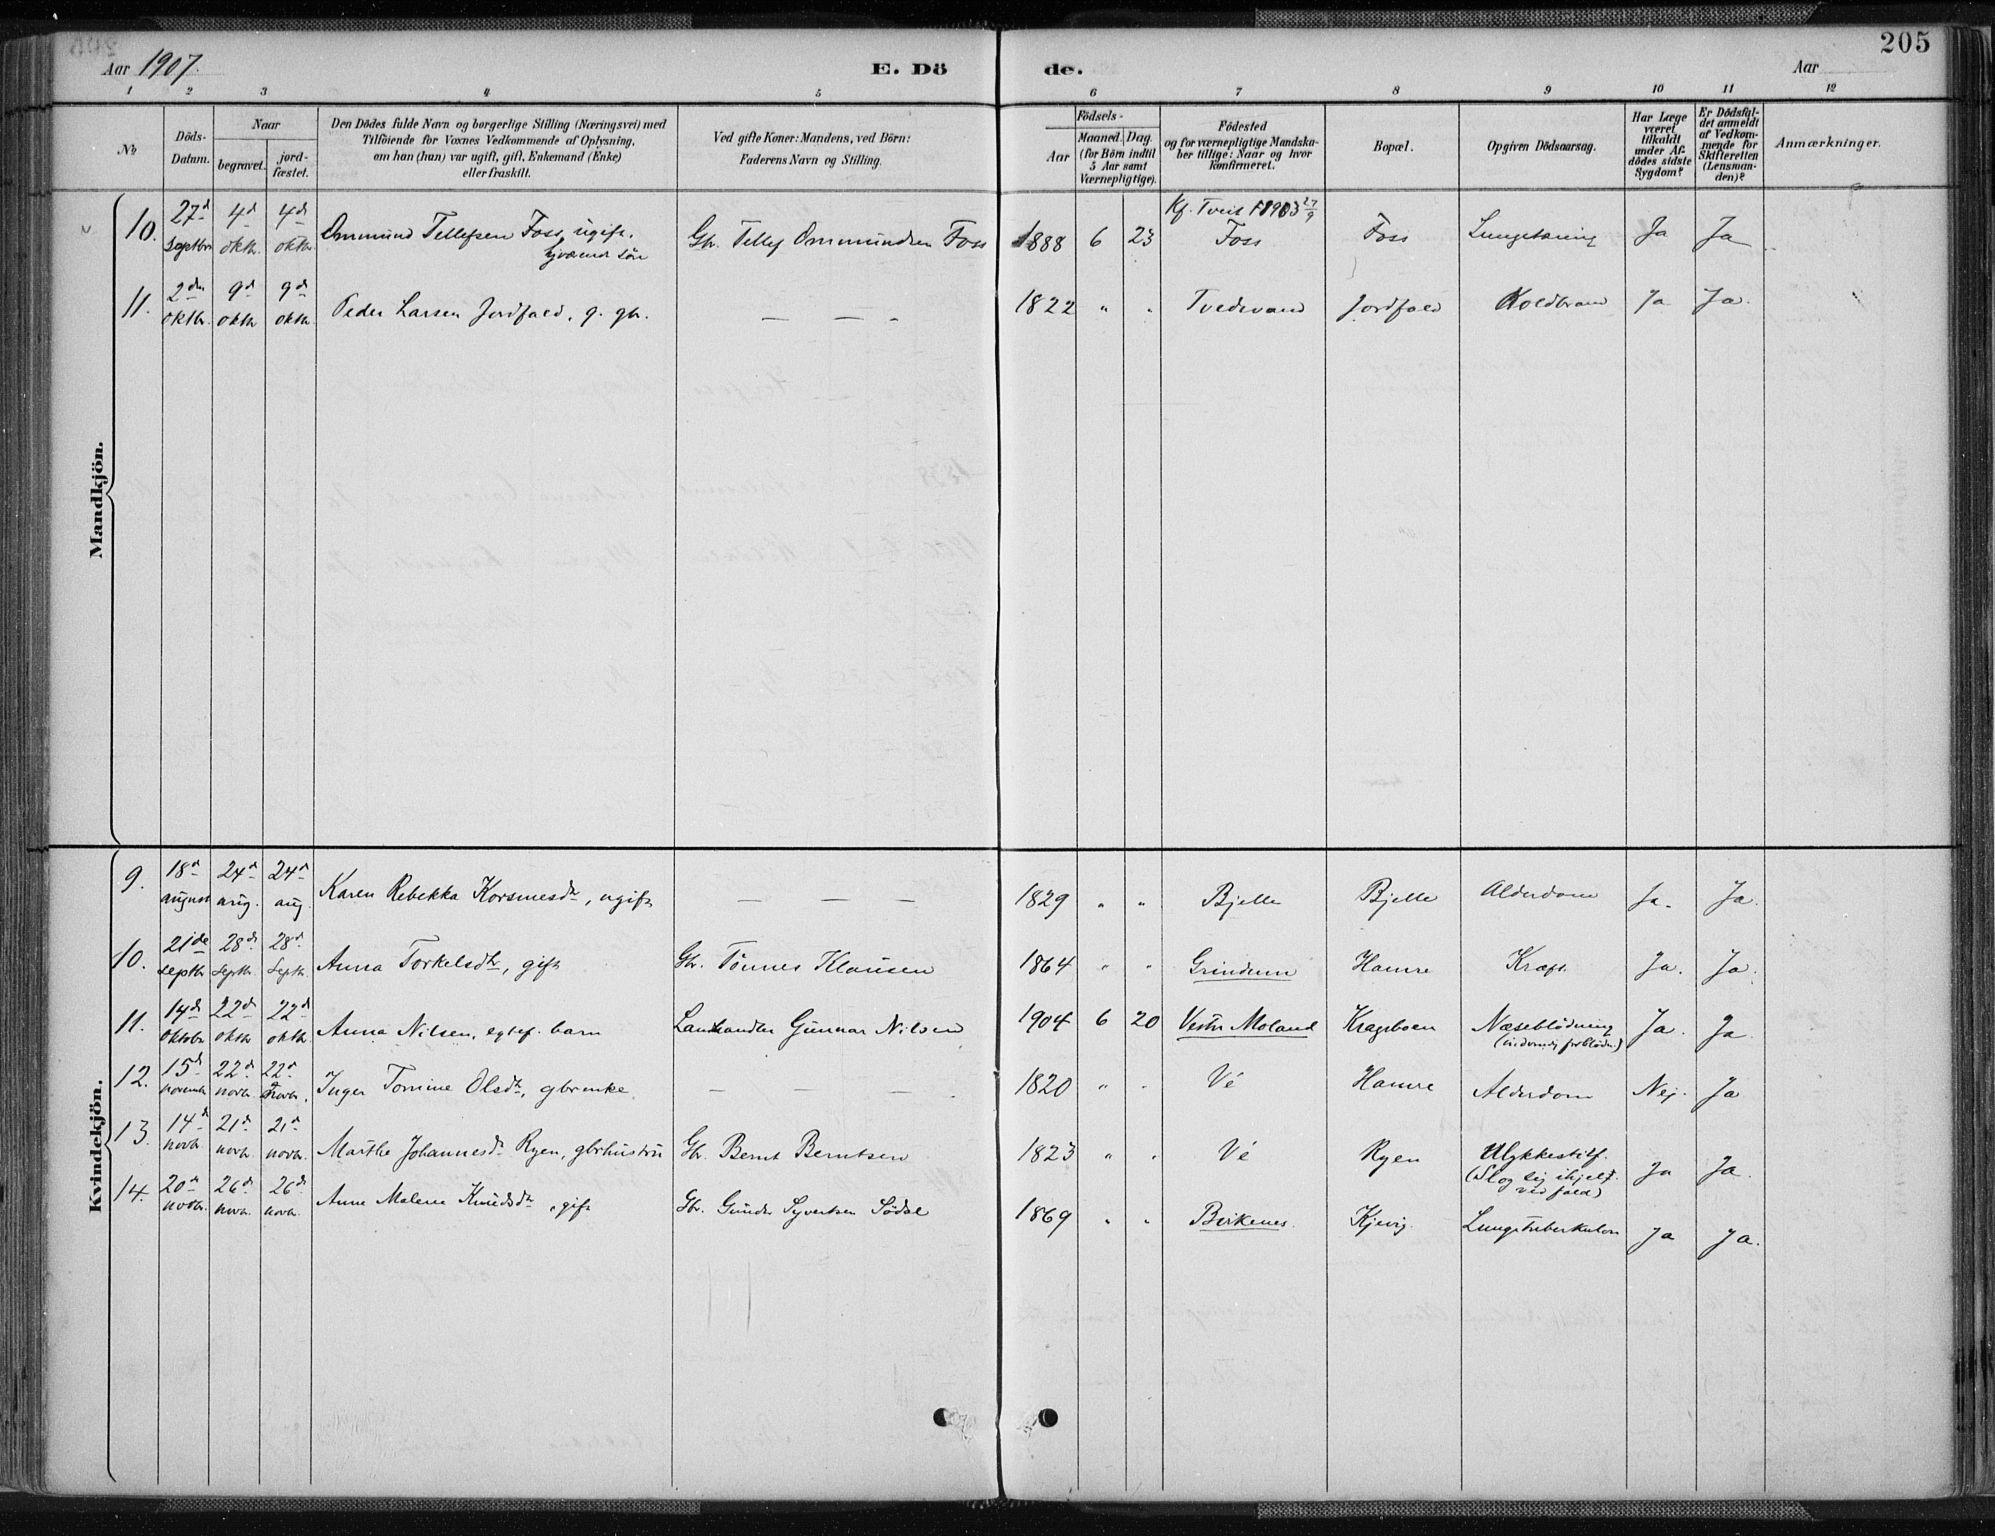 205
Aar 1907. E. Dö de. Aar
1 2 3 4 5 6 7 8 9 10 11 12
No
Döds-Datum.
Naar
begravet.
jord-fæstet.
Den Dödes fulde Navn og borgerlige Stilling (Næringsvei) med
Tilföiende for Voxnes Vedkommende af Oplysning,
om han (hun) var ugift, gift, Enkemand (Enke)
eller fraskilt.
Ved gifte Koner: Mandens, ved Börn:
Faderens Navn og Stilling.
Födsels-
Aar
Maaned. Dag.
(for Börn indtil
5 Aar samt
Værnepligtige).
Födested
og for værnepligtige Mandska-
ber tillige: Naar og hvor
konfirmeret.
Bopæl.
Opgiven Dödsaarsag.
Har Læge
været
tilkaldt
under Af-
dödes sidste
Sygdom?
Er Dödsfal-
det anmeldt
af Vedkom-
mende for
Skifteretten
(Lensman-
den)?
Anmærkninger.
Mandkjön.
Kf. Tveit 1903 27/9
10. 27d Septbr 4d oktbr. 4d oktbr Ommund Tellefsen Foss, ugift. Gbr. Tellef Ommundsen Foss 1888 6 23 Foss Foss Lungetæring Ja Ja
sön
11. 2den oktbr. 9d oktbr 9d oktbr. Peder Larsen Jordfald, g. gbr. — — - 1822 " " Tvedevand Jordfald Koldbrand Ja Ja.
Kvindekjön.
9. 18d august 24d aug. 24d aug. Karen Rebekka Korsmesdtr, ugift — — — 1829 " " Bjelle Bjelle Alderdom Ja. Ja.
10. 21de septbr 28d septbr. 28d septbr Anna Torkelsdtr, gift Gbr. Tönnes Klausen 1864 " " Grindum Hamre Kræft Ja. Ja.
11. 14d oktobr 22d oktbr 22d oktbr. Anna Nilsen, egtef. barn Landhandler Gunnar Nilsen 1904 6 20 Vestr Moland Krageboen Næseblödning Ja. Ja.
12. 15d novembr 22d novbr. 22d novbr. Inger Tomine Olsdtr, gbrenke. — — — 1820 " " Vé Hamre Alderdom Nej. Ja
13. 14d novbr. 21d novbr. 21d novbr. Marthe Johannesdtr Ryen, gbrhustru Gbr. Bernt Berntsen 1823 " " Vé Ryen Ulykkestilf. Ja Ja.
(Slog sig ihjel
ved fald)
14. 20d novbr. 26d novbr. 26d novbr. Anne Malene Knudsdtr, gift Gbr. Gunder Syvertsen Södal 1869 " " Birkenes. Kjevig. Lungetuberkulose Ja Ja.